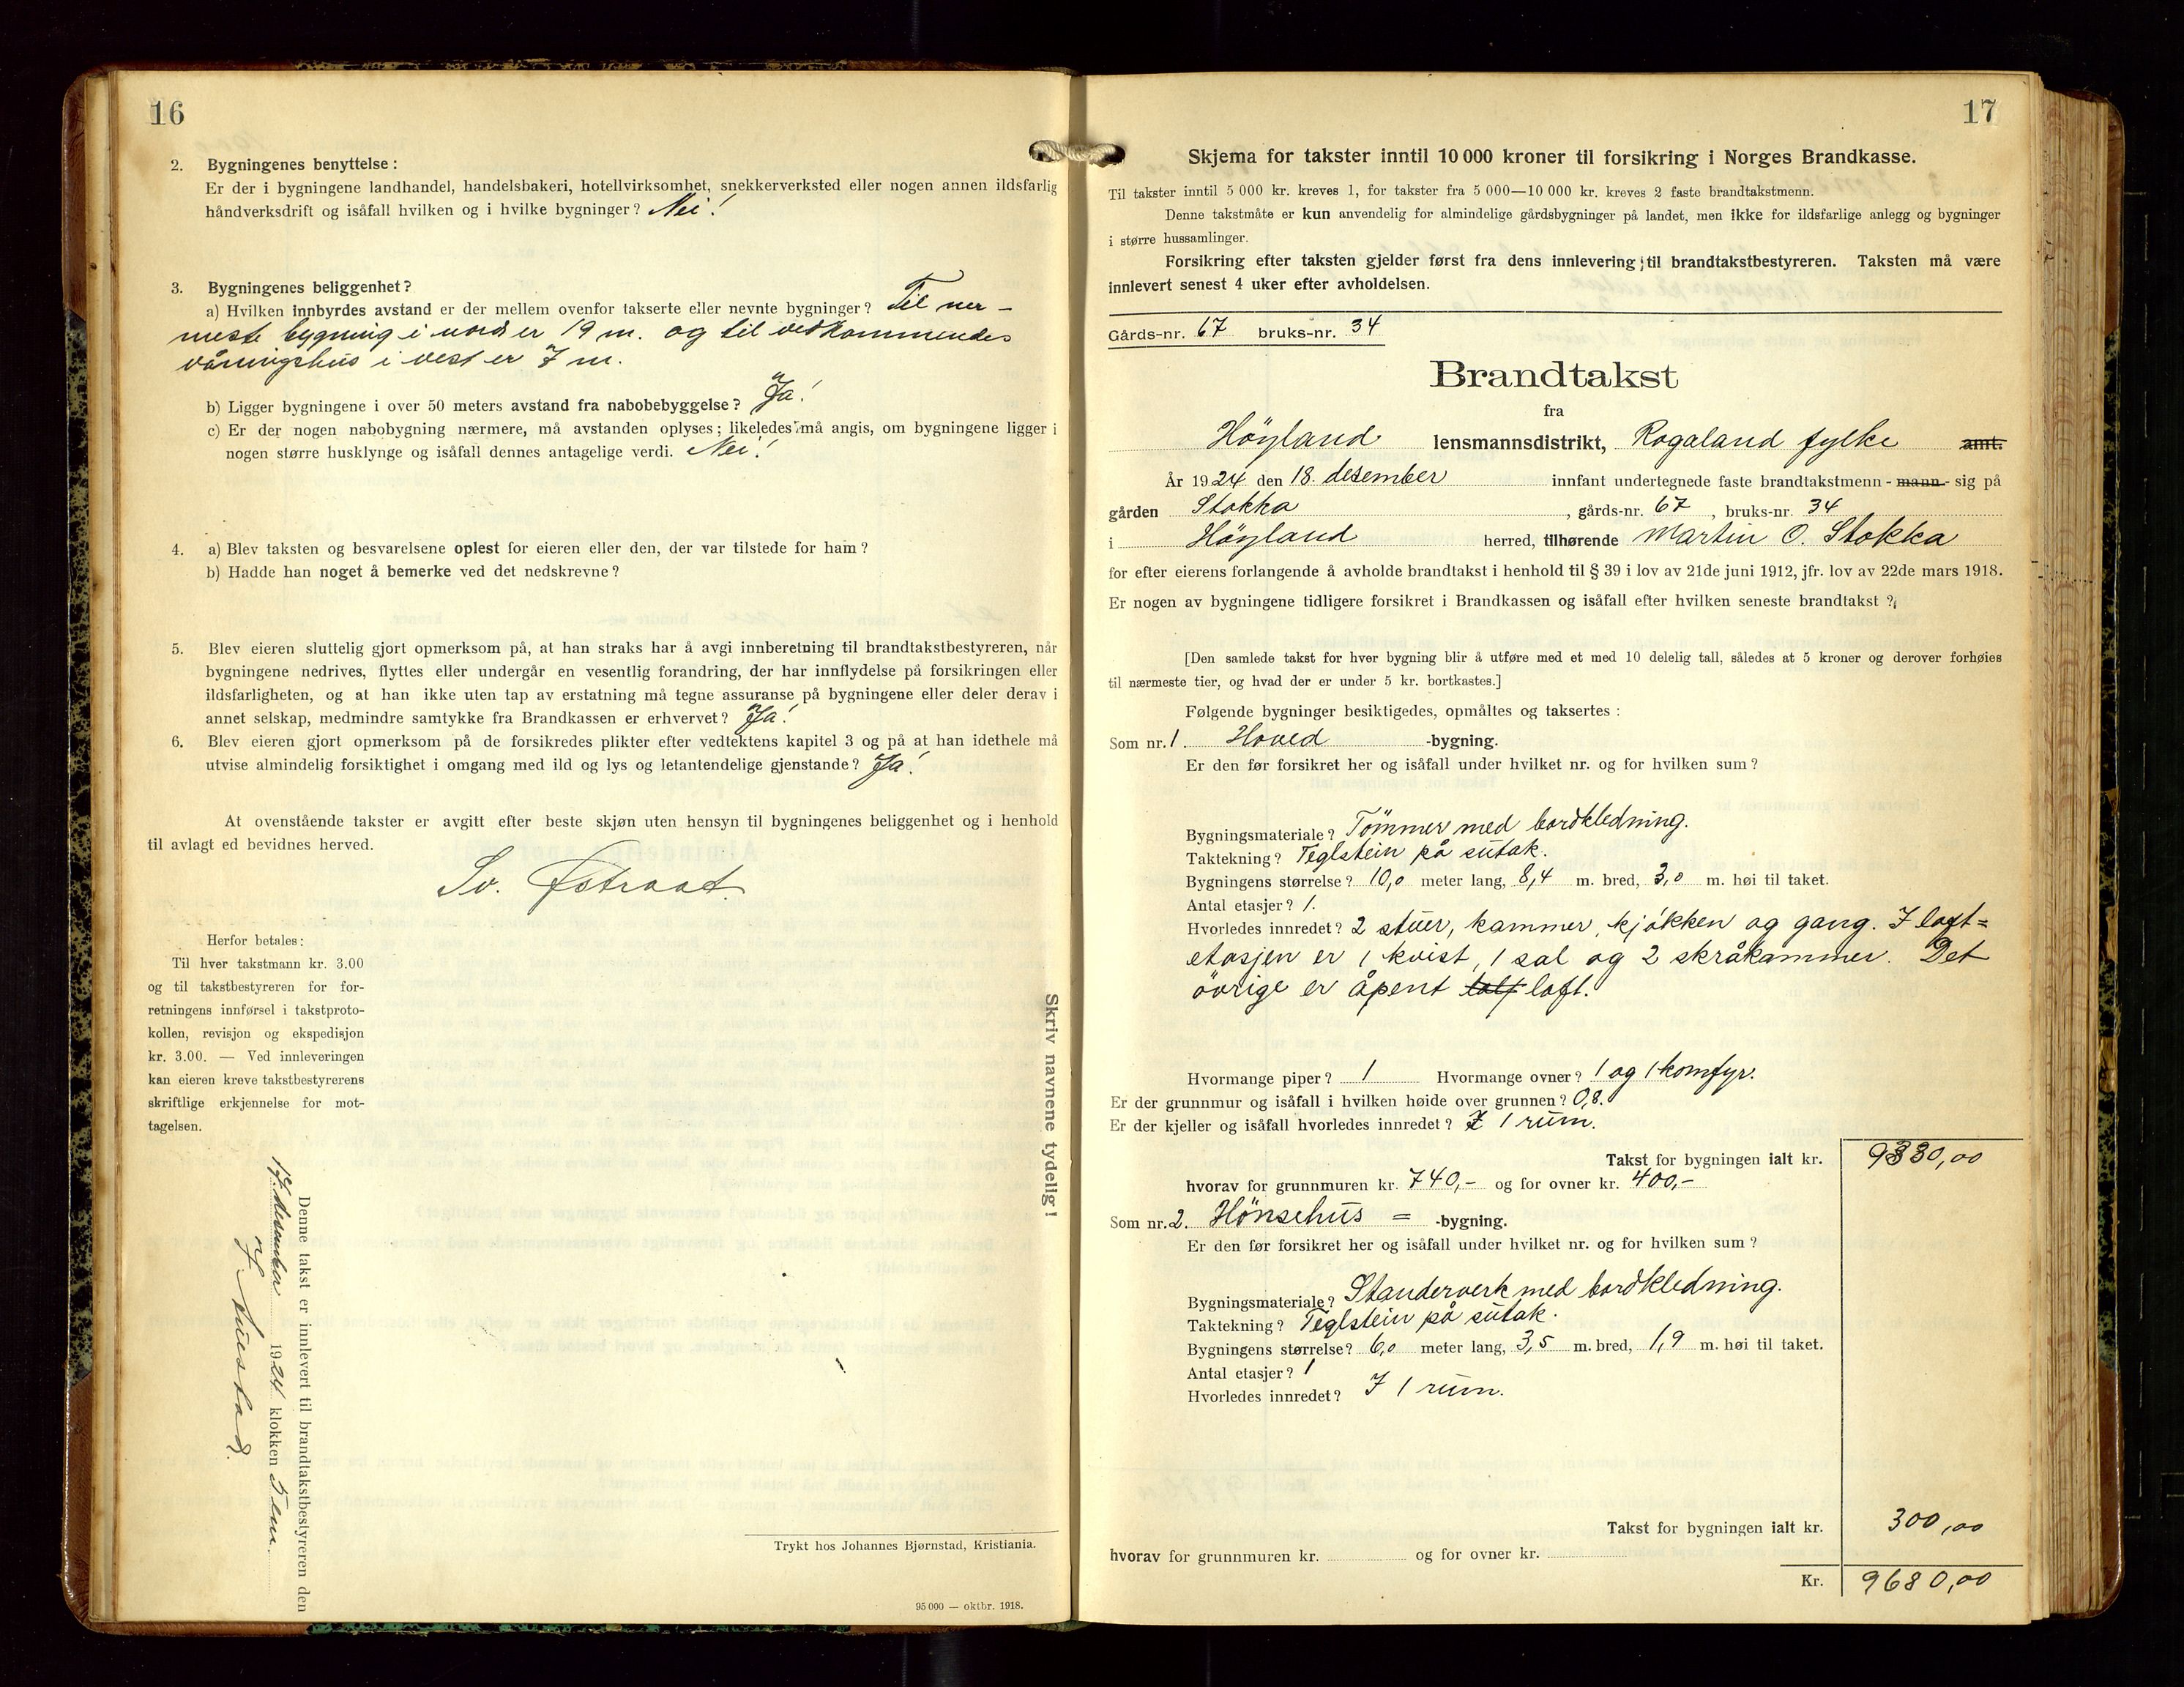 16
2. Bygningenes benyttelse:
Er der i bygningene landhandel, handelsbakeri, hotellvirksomhet, snekkerverksted eller nogen annen ildsfarlig
håndverksdrift og isåfall hvilken og i hvilke bygninger? Nei!
3. Bygningenes beliggenhet?
a) Hvilken innbyrdes avstand er der mellem ovenfor takserte eller nevnte bygninger? Til ner-
meste bygning i nord er 19 m. og til vedkommendes
våningshus i vest er 7 m.
b) Ligger bygningene i over 50 meters avstand fra nabobebyggelse? Ja!
c) Er der nogen nabobygning nærmere, må avstanden oplyses; likeledes må angis, om bygningene ligger i
nogen større husklynge og isåfall dennes antagelige verdi. Nei!
4. a) Blev taksten og besvarelsene oplest for eieren eller den, der var tilstede for ham?
b) Hadde han noget å bemerke ved det nedskrevne?
5. Blev eieren sluttelig gjort opmerksom på, at han straks har å avgi innberetning til brandtakstbestyreren, når
bygningene nedrives, flyttes eller undergår en vesentlig forandring, der har innflydelse på forsikringen eller
ildsfarligheten, og at han ikke uten tap av erstatning må tegne assuranse på bygningene eller deler derav i
annet selskap, medmindre samtykke fra Brandkassen er erhvervet? Ja!
6. Blev eieren gjort opmerksom på de forsikredes plikter efter vedtektens kapitel 3 og på at han idethele må
utvise almindelig forsiktighet i omgang med ild og lys og letantendelige gjenstande? Ja!
At ovenstående takster er avgitt efter beste skjøn uten hensyn til bygningenes beliggenhet og i henhold
til avlagt ed bevidnes herved.
Sv. Østraat.
Herfor betales:
Til hver takstmann kr. 3.00
og til takstbestyreren for for-
retningens innførsel i takstproto-
kollen, revisjon og ekspedisjon
kr. 3.00. — Ved innleveringen
kan eieren kreve takstbestyrerens
skriftlige erkjennelse for mot-
tagelsen.
Skriv navnene tydelig!
Denne takst er innlevert til brandtakstbestyreren den
desember 1924 klokken 5 em.
Trykt hos Johannes Bjørnstad, Kristiania.
95 000 — oktbr. 1918.
17
Skjema for takster inntil 10 000 kroner til forsikring i Norges Brandkasse.
Til takster inntil 5 000 kr. kreves 1, for takster fra 5 000—10 000 kr. kreves 2 faste brandtakstmenn.
Denne takstmåte er kun anvendelig for almindelige gårdsbygninger på landet, men ikke for ildsfarlige anlegg og bygninger
i større hussamlinger.
Forsikring efter taksten gjelder først fra dens innlevering til brandtakstbestyreren. Taksten må være
innlevert senest 4 uker efter avholdelsen.
Gårds-nr. 67 bruks-nr. 34
Brandtakst
fra
Höyland lensmannsdistrikt, Rogaland fylke amt.
År 1924 den 18. desember innfant undertegnede faste brandtakstmenn - mann - sig på
gården Stokka, gårds-nr. 67, bruks-nr. 34
i Höyland herred, tilhørende Martin O. Stokka
for efter eierens forlangende å avholde brandtakst i henhold til § 39 i lov av 21de juni 1912, jfr. lov av 22de mars 1918.
Er nogen av bygningene tidligere forsikret i Brandkassen og isåfall efter hvilken seneste brandtakst?
[Den samlede takst for hver bygning blir å utføre med et med 10 delelig tall, således at 5 kroner og derover forhøies
til nærmeste tier, og hvad der er under 5 kr. bortkastes.]
Følgende bygninger besiktigedes, opmåltes og taksertes:
Som nr. 1. Hoved -bygning.
Er den før forsikret her og isåfall under hvilket nr. og for hvilken sum?
Bygningsmateriale? Tömmer med bordkledning.
Taktekning? Teglstein på sutak.
Bygningens størrelse? 10,0 meter lang, 8,4 m. bred, 3,0 m. høi til taket.
Antal etasjer? 1.
Hvorledes innredet? 2 stuer, kammer, kjökken og gang. I loft=
etasjen er 1 kvist, 1 sal og 2 skråkammer. Det
övrige er åpent lolf loft.
Hvormange piper? 1 Hvormange ovner? 1 og 1 komfyr.
Er der grunnmur og isåfall i hvilken høide over grunnen? 0,8.
Er der kjeller og isåfall hvorledes innredet? I 1 rum.
Takst for bygningen ialt kr. 9380,00
hvorav for grunnmuren kr. 740,- og for ovner kr. 400,-
Som nr. 2. Hönsehus = -bygning.
Er den før forsikret her og isåfall under hvilket nr. og for hvilken sum?
Bygningsmateriale? Standerverk med bordkledning.
Taktekning? Teglstein på sutak.
Bygningens størrelse? 6,0 meter lang, 3,5 m. bred, 1,9 m. høi til taket.
Antal etasjer? 1
Hvorledes innredet? I 1 rum.
Takst for bygningen ialt kr. 300,00
hvorav for grunnmuren kr. og for ovner kr.
Kr. 9680,00